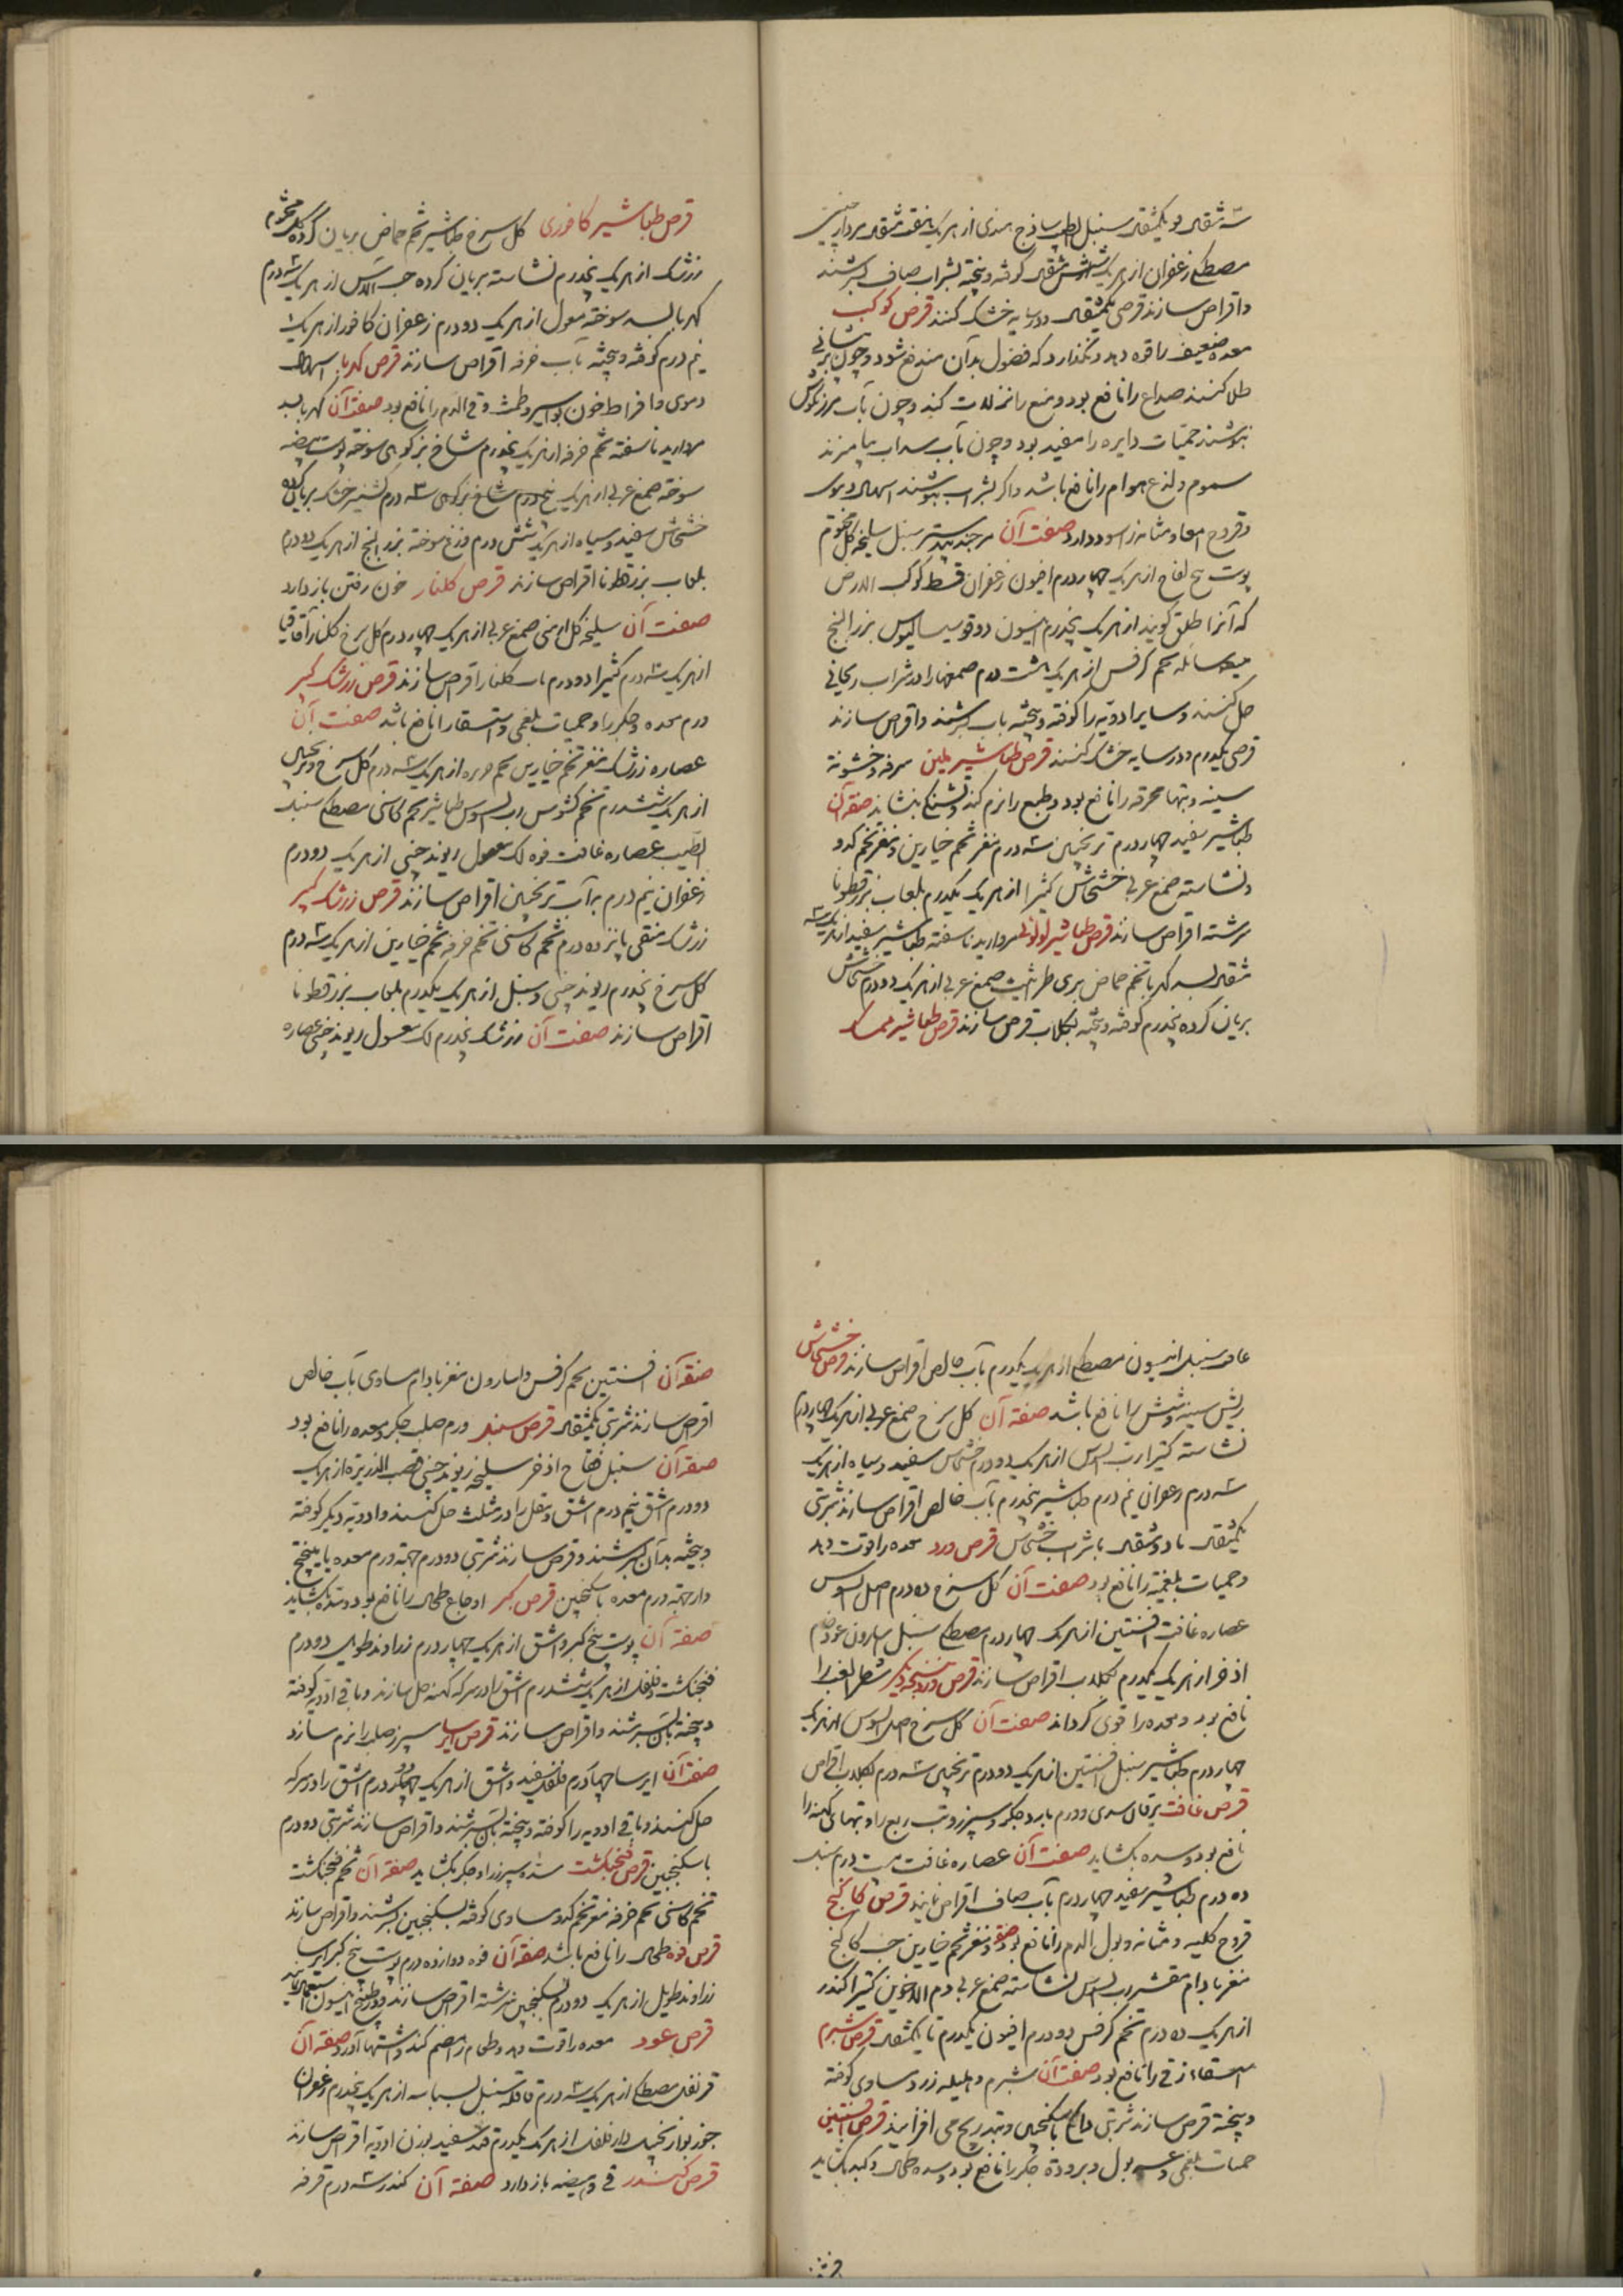 سه مثقال مر یکمثقال سنبل الطیب ساذج هندی از هر یک هفت مثقال مر دارچینی
مصطکی زعفران از هر یک شش مثقال کوفته و بیخته بشراب صاف بسرشند
و اقراص سازند قرصی یکمثقال و در سایه خشک کنند قرص کوکب
معده ضعیف را قوه دهد و نگذارد که فضول بدان مندفع شود و چون بر پیشانی
طلا کنند صداع را نافع بود و منع را نزلات کند و چون بآب مرزنکوش
بنوشند حمیات دایره را مفید بود و چون بآب سداب بیامیزند
سموم و لذع هوام را نافع باشد و اکر بشراب بنوشند اسهال دموی
و قروح امعا و مثانه را سود دارد صفت آن مر جندبیدستر سنبل سلیخه کل مختوم
پوست بیخ لفاح از هر یک چهار درم افیون زعفران قسط کوکب الارض
که آنرا طلق کویند از هر یک پنجدرم انیسون دوقو سیسالیوس بزر البنج
میعه سائله تخم کرفس از هر یک هشت درم صمغها را در شراب ریحانی
حل کنند و سایر ادویه را کوفته و بیخته بآب بسرشند و اقراص سازند
قرصی یکدرم و در سایه خشک کنند قرص طباشیر ملین سرفه و خشونة
سینه و تبهاء محرقه را نافع بود و طبع را نرم کند و تشنکی بنشاند صفة آن
طباشیر سفید چهار درم ترنجبین سه درم مغز تخم خیارین و مغز تخم کدو
و نشاسته صمغ عربی خشخاش کثیرا از هر یک یکدرم بلعاب بزرقطونا
سرشته اقراص سازند قرص طباشیر لولوئی مروارید ناسفته طباشیر سفید از هر یک سه
مثقال بسد کهربا تخم حماض بری طراثیث صمغ عربی از هر یک دو درم خشخاش
بریان کرده پنجدرم کوفته و بیخته بکلاب قرص سازند قرص طباشیر ممسک
قرص طباشیر کافوری کل سرخ طباشیر تخم حماض بریان کرده کل مختوم
زرشک از هر یک پنجدرم نشاسته بریان کرده حب الآس از هر یک سه درم
کهربا بسد سوخته مغسول از هر یک دو درم زعفران کافور از هر یک
نیم درم کوفته و بیخته بآب خرفه اقراص سازند قرص کهربا اسهال
دموی و افراط خون بواسیر و طمث و قی الدم را نافع بود صفة آن کهربا بسد
مروارید ناسفته تخم خرفه از هر یک پنجدرم شاخ بز کوهی سوخته پوست بیضه
سوخته صمغ عربی از هر یک پنج درم شاخ بز کوهی سه درم کشنیز خشک بریان کرده
خشخاش سفید و سیاه از هر یک شش درم وزغ سوخته بزر البنج از هر یک دو درم
بلعاب بزرقطونا اقراص سازند قرص کلنار خون رفتن باز دارد
صفت آن سلیخه کل ارمنی صمغ عربی از هر یک چهار درم کل سرخ کلنار اقاقیا
از هر یک سه درم کثیرا دو درم بآب کلنار اقراص سازند قرص زرشک کبیر
ورم معده و جکر را و حمیات بلغمی و استسقا را نافع باشد صفت آن
عصاره زرشک مغز تخم خیارین تخم خرفه از هر یک سه درم کل سرخ و ترنجبین
از هر یک شش درم تخم کشوث رب السوس طباشیر تخم کاسنی مصطکی سنبل
الطیب عصاره غافت فوه لک مغسول ریوند چینی از هر یک دو درم
زعفران نیم درم به آب ترنجبین اقراص سازند قرص زرشک کبیر
زرشک منقی پانزده درم تخم کاسنی تخم خرفه تخم خیارین از هر یک سه درم
کل سرخ پنجدرم ریوند چینی و سنبل از هر یک یکدرم بلعاب بزر قطونا
اقراص سازند صفت آن زرشک پنجدرم لک مغسول ریوند چینی عصاره
غافت سنبل انیسون مصطکی از هر یک یکدرم بآب خالص اقراص سازند قرص خشخاش
ریش سینه و شش را نافع باشد صفة آن کل سرخ صمغ عربی از هر یک چهار درم
نشاسته کتیرا رب السوس از هر یک دو درم خشخاش سفید و سیاه از هر یک
سه درم زعفران نیم درم طباشیر پنجدرم بآب خالص اقراص سازند شربتی
یکمثقال با دو مثقال با شراب خشخاش قرص ورد معده را قوت دهد
و حمیات بلغمیه را نافع بود صفت آن کل سرخ ده درم اصل السوس
عصاره غافت افسنتین از هر یک چهار درم مصطکی سنبل اسارون عود خام
اذخر از هر یک یکدرم بکلاب اقراص سازند قرص ورد بنسخه دیکر شطر الغب را
نافع بود و معده را قوی کرداند صفت آن کل سرخ اصل السوس از هر یک
چهار درم طباشیر سنبل افسنتین از هر یک دو درم ترنجبین سه درم بکلاب اقراص
قرص غافت یرقان سدی و ورم بارد جکر و سپرز و تب ربع را و تبهای کهنه را
نافع بود و سده بکشاید صفت آن عصاره غافت بیست درم سنبل
ده درم طباشیر سفید چهار درم بآب صاف اقراص نمایند قرص کاکنج
قروح کلیه و مثانه و بول الدم را نافع بود صفة مغز تخم خیارین حب کاکنج
مغز بادام مقشر رب السوس نشاسته صمغ عربی دم الاخوین کثیرا کندر
از هر یک ده درم تخم کرفس دو درم افیون یکدرم تا یکمثقال قرص شبرم
استسقاء زقی را نافع بود صفت آن شبرم و هلیله زرد مساوی کوفته
و بیخته قرص سازند شربتی دانکی باسکنجبین و بتدریج می افزایند قرص افسنتین
حمیات بلغمی و عسر بول و برودة جکر را نافع بود و سده طحال و کبد بکشاید
صفة آن افسنتین تخم کرفس و اسارون مغز بادام مساوی بآب خالص
اقراص سازند شربتی یکمثقال قرص سنبل ورم صلب جکر و معده را نافع بود
صفة آن سنبل فقاح اذخر سلیخه ریوند چینی قصب الذریره از هر یک
دو درم اشق نیم درم اشق و مقل را در مثلث حل کنند و ادویه دیکر کوفته
و بیخته بدان بسرشند و قرص سازند شربتی دو درم جهة ورم معده با میبختج
و از جهة ورم معده با سکنجبین قرص کبر اوجاع طحال را نافع بود و سده بکشاید
صفة آن پوست بیخ کبر و اشق از هر یک چهار درم زراوند طویل دو درم
فنجنکشت و فلفل از هر یک شش درم اشق را در سرکه کهنه حل سازند و باقی ادویه کوفته
و بیخته بآن بسرشند و اقراص سازند قرص ایرسا سپرز صلب را نرم سازد
صفة آن ایرسا چهار درم فلفل سفید و اشق از هر یک چهار درم اشق را در سرکه
حل کنند و باقی ادویه را کوفته و بیخته بآن بسرشند و اقراص سازند شربتی دو درم
باسکنجبین قرص فنجنکشت سده سپرز را و جکر بکشاید صفة آن تخم فنجنکشت
تخم کاسنی تخم خرفه مغز تخم کدو مساوی کوفته بسکنجبین بسرشند و اقراص سازند
قرص فوه طحال را نافع باشد صفة آن فوه دوازده درم پوست بیخ کبر ایرسا
زراوند طویل از هر یک دو درم بسکنجبین سرشته اقراص سازند و در طبیخ انیسون استعمال نمایند
قرص عود معده را قوت دهد و طعام را هضم کند و اشتها آورد صفة آن
قرنفل مصطکی از هر یک سه درم قاقله سنبل بسباسه از هر یک پنجدرم زعفران
جوز بوا زنجبیل دار فلفل از هر یک یکدرم قند سفید بوزن ادویه اقراص سازند
قرص کندر قی و هیضه باز دارد صفة آن کندر سه درم قرفه